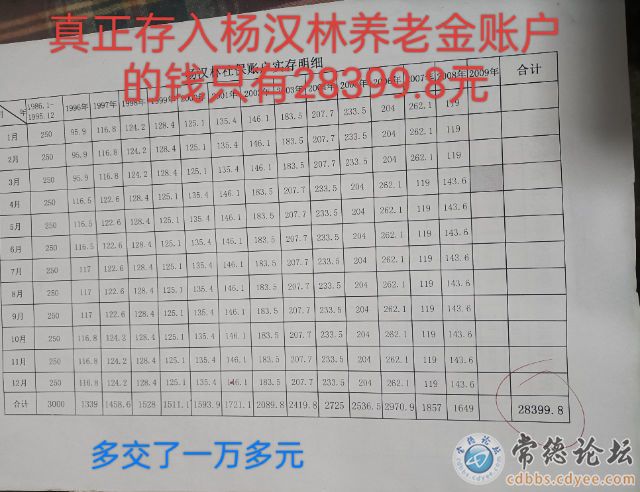 真正存入杨汉林养老金账户
的钱只有28399.8元
杨汉林社保账户实存明细
月 年 1986.1-1995.12 1996年 1997年 1998年 1999年 2000年 2001年 2002年 2003年 2004年 2005年 2006年 2007年 2008年 2009年 合计
1月 250 95.9 116.8 124.2 128.4 125.1 135.4 146.1 183.5 207.7 233.5 204 262.1 119
2月 250 95.9 116.8 124.2 128.4 125.1 135.4 146.1 183.5 207.7 233.5 204 262.1 119
3月 250 95.9 116.8 124.2 128.4 125.1 135.4 146.1 183.5 207.7 233.5 204 262.1 119
4月 250 116.5 122.6 128.4 125.1 135.4 146.1 183.5 207.7 233.5 204 262.1 119 143.6
5月 250 116.5 122.6 128.4 125.1 135.4 146.1 183.5 207.7 233.5 204 262.1 119 143.6
6月 250 116.5 122.6 128.4 125.1 135.4 146.1 183.5 207.7 233.5 204 262.1 119 143.6
7月 250 117 122.6 128.4 125.1 135.4 146.1 183.5 207.7 233.5 204 262.1 119 143.6
8月 250 117 122.6 128.4 125.1 135.4 146.1 183.5 207.7 233.5 204 262.1 119 143.6
9月 250 117 122.6 128.4 125.1 135.4 146.1 183.5 207.7 233.5 204 262.1 119 143.6
10月 250 116.8 124.2 128.4 125.1 135.4 146.1 183.5 207.7 233.5 204 262.1 119 143.6
11月 250 116.8 124.2 128.4 125.1 135.4 146.1 183.5 207.7 233.5 204 262.1 119 143.6
12月 250 116.8 124.2 128.4 125.1 135.4 146.1 183.5 207.7 233.5 204 262.1 119 143.6
合计 3000 1339 1458.6 1528 1511.1 1593.9 1721.1 2089.8 2419.8 2725 2536.5 2970.9 1857 1649 28399.8
多交了一万多元
常德论坛
cdbbs.cdyee.com